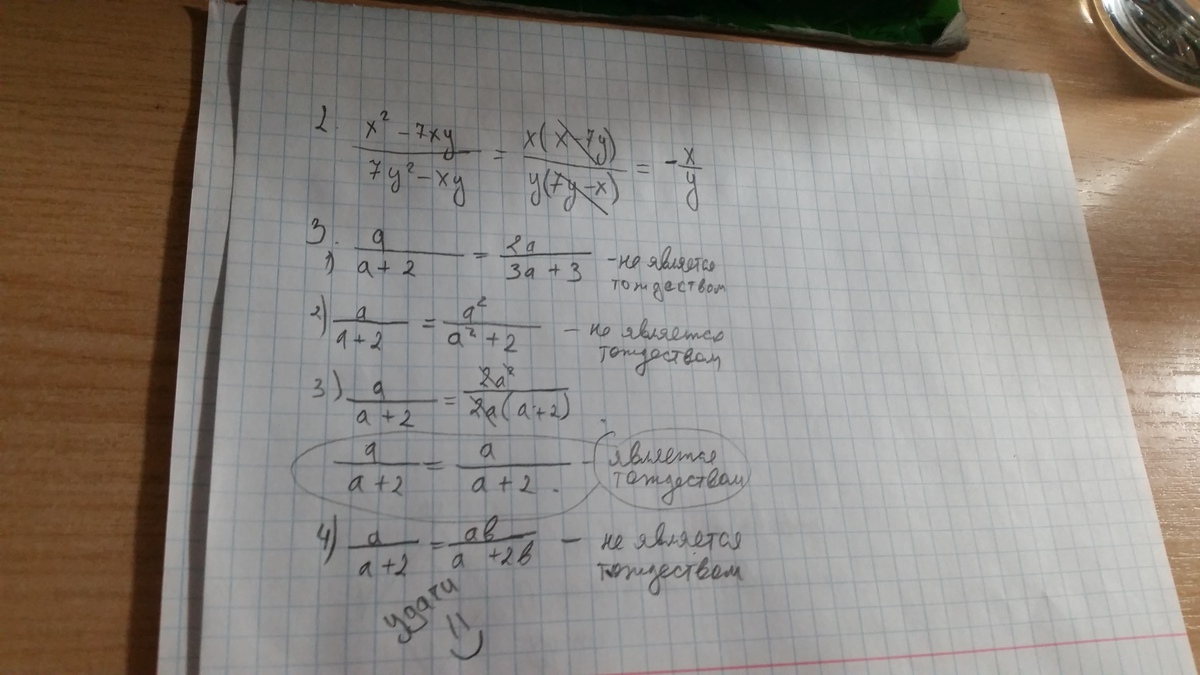 2. (x² - 7xy)/(7y² - xy) = x(x - 7y)/y(7y - x) = -x/y
3.
1) a/(a + 2) = 2a/(3a + 3) - не является
тождеством
2) a/(a + 2) = a²/(a² + 2) - не является
тождеством
3) a/(a + 2) = 2a²/2a(a + 2)
a/(a + 2) = a/(a + 2) - является
тождеством
4) a/(a + 2) = ab/(a + 2b) - не является
тождеством
удачи =)